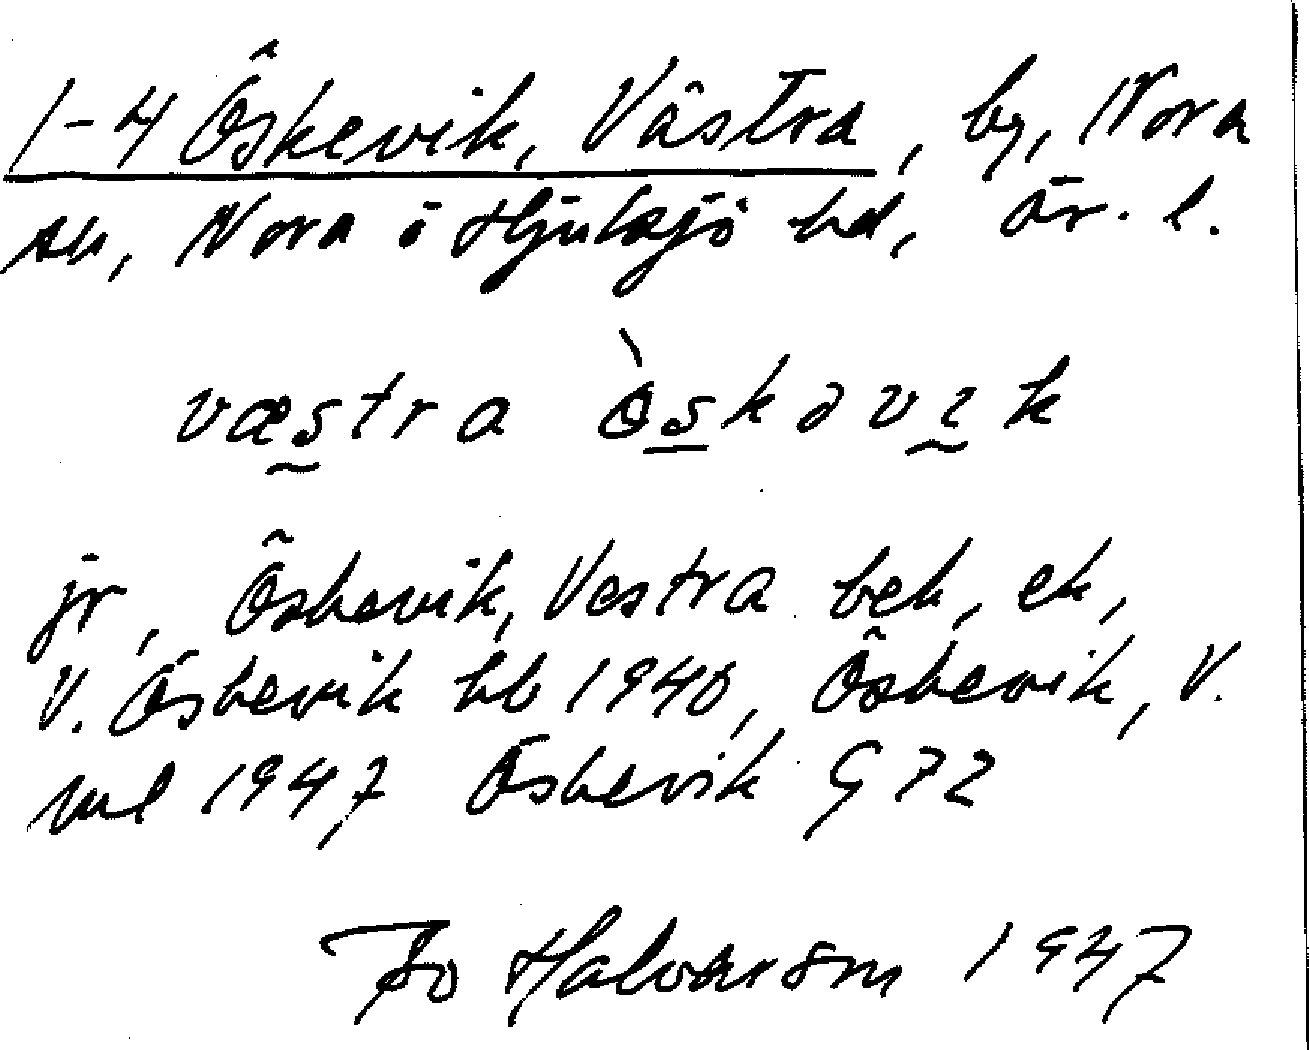 1-4 Öskevik, Västra, by, Nora
sn, Nora o Hjulsjö bd, Ör. l.
væstra öskəvik
jr, Öskevik, Vestra bek, ek,
V. Öskevik hb 1940, Öskevik, V.
ml 1947 Öskevik G 72
Jo Halvarson 1947